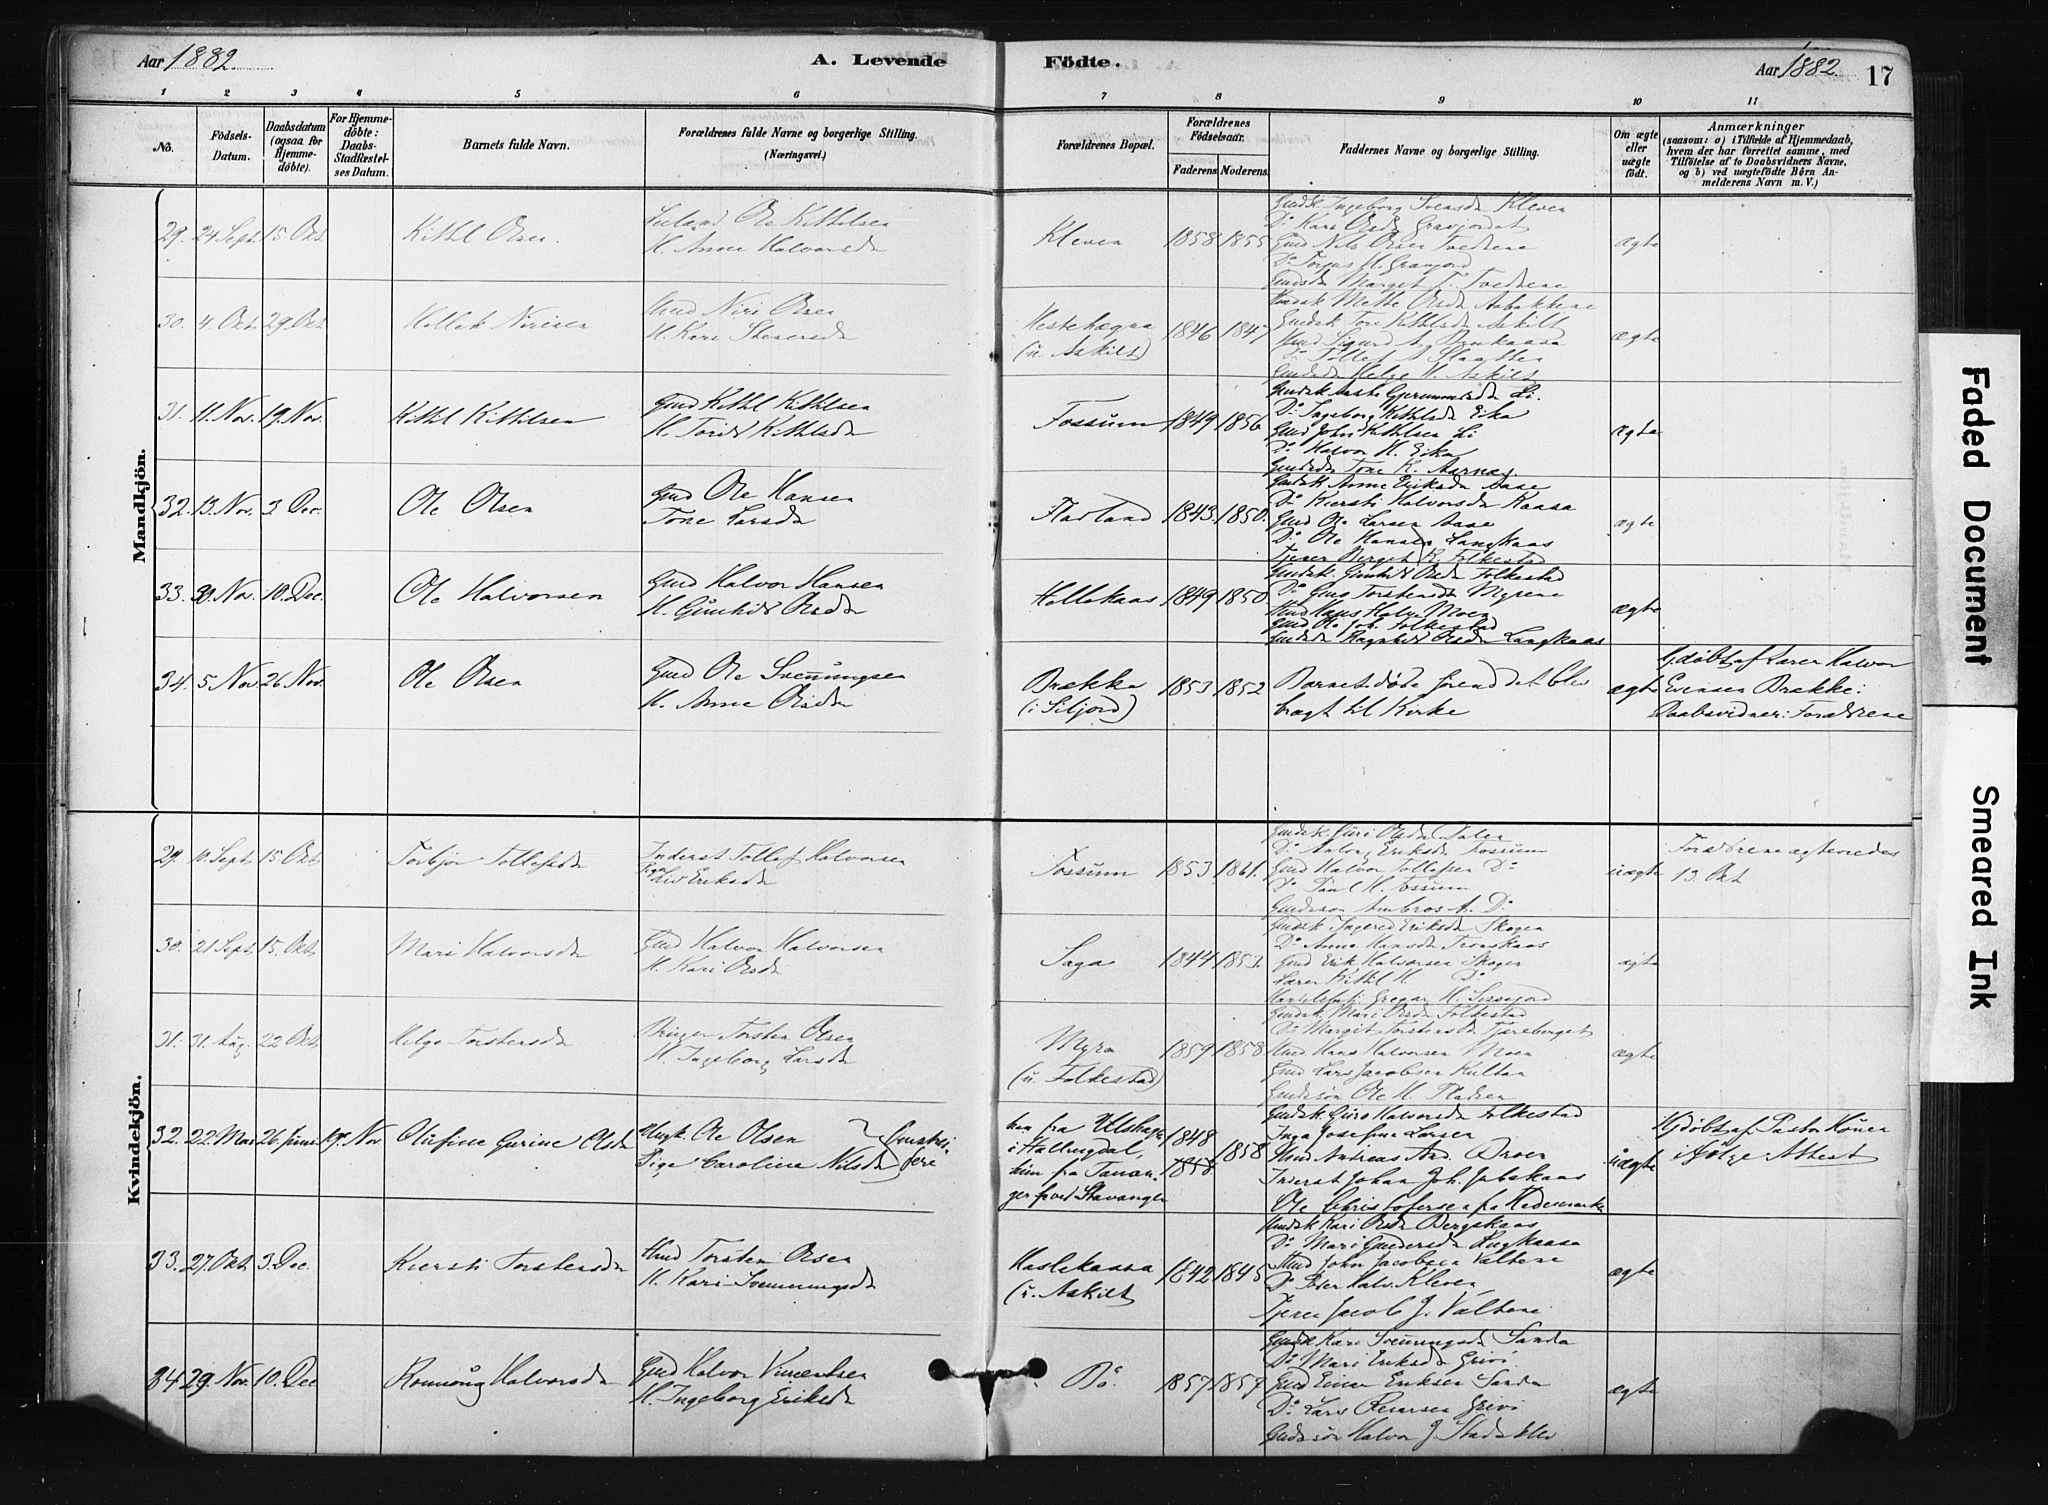 Aar 1882.
A. Levende
Födte.
Aar 1882.
17
1 2 3 4 5 6 7 8 9 10 11
No.
Födsels-
Datum.
Daabsdatum
(ogsaa for
Hjemme-
döbte).
For Hjemme-
döbte:
Daabs-
Stadfæstel-
ses Datum.
Barnets fulde Navn.
Forældrenes fulde Navne og borgerlige Stilling.
(Næringsvei.)
Forældrenes Bopæl.
Forældrenes
Födselsaar.
Faderens.
Moderens.
Faddernes Navne og borgerlige Stilling.
Om ægte
eller
uægte
födt.
Anmærkninger
(saasom: a) i Tilfælde af Hjemmedaab,
hvem der har forrettet samme, med
Tilföielse af to Daabsvidners Navne,
og b) ved uægtefödte Börn An-
melderens Navn m. V.)
Mandkjön.
29. 24 Sept. 15 Okt
Kittil Olsen
Ole Kittilsen
H. Anne Halvorsd
Kleven
1858 1855
Gudsk Ingeborg Svensd Kleven
Do Kari Olsd Gravjordet
Gmd Nils Olsen Tvedtene
Do Torjus H. Gravjord
Gmdsd Marget T. Tvedtene
ægte
30. 4 Okt. 29 Okt
Hellek Nirisen
Hmd Niri Olsen
H. Kari Steversd
Hestehægna
(u. Askilt)
1846 1847
Gmdsk Tone Kittilsd Askilt
Do Tollef A Slaatten
Gmdsd Helge H. Askilt
ægte
31. 11. Nov. 19. Nov.
Kittil Kittilsen
Gmd Kittil Kittilsen
H. Torid Kittilsd
Fossum
1849 1856
Gmdsk Aaste Gjermundsd Li.
Do Ingeborg Kittilsd Eika
Gmd John Kittilsen Li
Do Halvor H. Eika
Gmdsd Tone K. Aarnæs.
ægte
32. 13. Nov. 3 Dec.
Ole Olsen
Gmd Ole Hansen
Tone Larsd
Flatland
1843. 1850.
Gmdsk Anne Eriksd Aase
Do Kiersti Halvorsd Kaasa
Gmd Ole Larsen Aase
Do Ole Hansen Langkaas
Tjener Berget K. Folkestad
ægte
33. 30. Nov. 10. Dec.
Ole Halvorsen
Gmd Halvor Hansen
H. Gunhild Olsd
Hellekaas
1849 1850
Gmdsk. Gunhild Olsd Folkestad
Do Guro Torstensd Myrene
Hmd Hans Halv. Moen
Gmd Ole Joh. Folkestad
Gmdsd Ragnhild Olsd Langkaas
ægte
34. 5 Nov 26 Nov.
Ole Olsen
Gmd Ole Svennungsen
H. Anne Olsd
Brække
(i Siljord)
1853 1852
Barnet döde förend det blev
bragt til Kirke
ægte
Hjdöbt af Lærer Halvor
Evensen Brække:
Daabsvidner: Forældrene
Kvindekjön.
29. 10. Sept. 15 Okt
Torbjör Tollefsd
Inderst Tollef Halvorsen
Pige Liv Eriksd
Fossum
1853 1861.
Gmdsk. Guri Olsd Dalen
Do Anlaug Eriksd Fossum
Gmd Halvor Tollefsen Do
Do Paul H. Fossum
Gmdssön Ambros A. Do
uægte
Forældrene ægteviedes
13. Okt
30. 21 Sept. 15. Okt
Mari Halvorsd
Gmd Halvor Halvorsen
H. Kari Olsd
Saga
1844 1853.
Gmdsk Ingered Eriksd Skogen
Do Anna Hansd Tronskaas
Gmd Erik Halvorsen Skogen
Lærer Kittil H. Do
Handelsfuldm. Gregar H. Seresjord
ægte
31. 31. Aug. 22 Okt
Helge Torstensd
Bruger Torsten Olsen
H. Ingeborg Larsd
Myra
(u. Folkestad)
1859 1858
Gmdsk. Mari Olsd Folkestad
Do Margit Torstensd Tjæreberget
Hmd Hans Halvorsen Moen
Gmd Lars Jacobsen Hultan
Gmdssön Ole H. Fladsen
ægte
32. 22. Mai 26 Juni 19. Nov
Olufine Gurine Olsd
Ungk. Ole Olsen
Pige Caroline Nilsd
han fra Ulshagen
i Hallingdal,
hun fra Tanan-
ger ved Stavanger
1848
1858 1858
Gmdsk. Guro Halvorsd Folkestad
Inga Josefine Larsen
Hmd Andreas And. Droen
Inderst Johan Joh. Jubskaas
Ole Christofersen fra Hedemarken
uægte
Hjdöbt af Pastor Körner
ifölge Attest
33. 27. Okt 3. Dec.
Kiersti Torstensd
Hmd Torsten Olsen
H. Kari Svennungsd
Haslekaasa
(u. Askilt
1842 1845
Hmdsk Kari Olsd Bergskaas
Do Mari Gundersd Lugkaasa
Hmd John Jacobsen Valtene
Do Peder Halv. Kleven
Tjener Jacob J. Valtene
ægte
34 29. Nov. 10. Dec
Ronnaug Halvorsd
Gmd Halvor Vincentsen
H. Ingeborg Eriksd
Bö
1857 1857
Gmdsk Kari Svennungsd Sanda
Do Mari Eriksd Grivi
Gmd Einar Eriksen Sanda
Do Lars Reiersen Grivi
Gmdssön Halvor J. Stadsklev
ægte
Faded Document
Smeared Ink